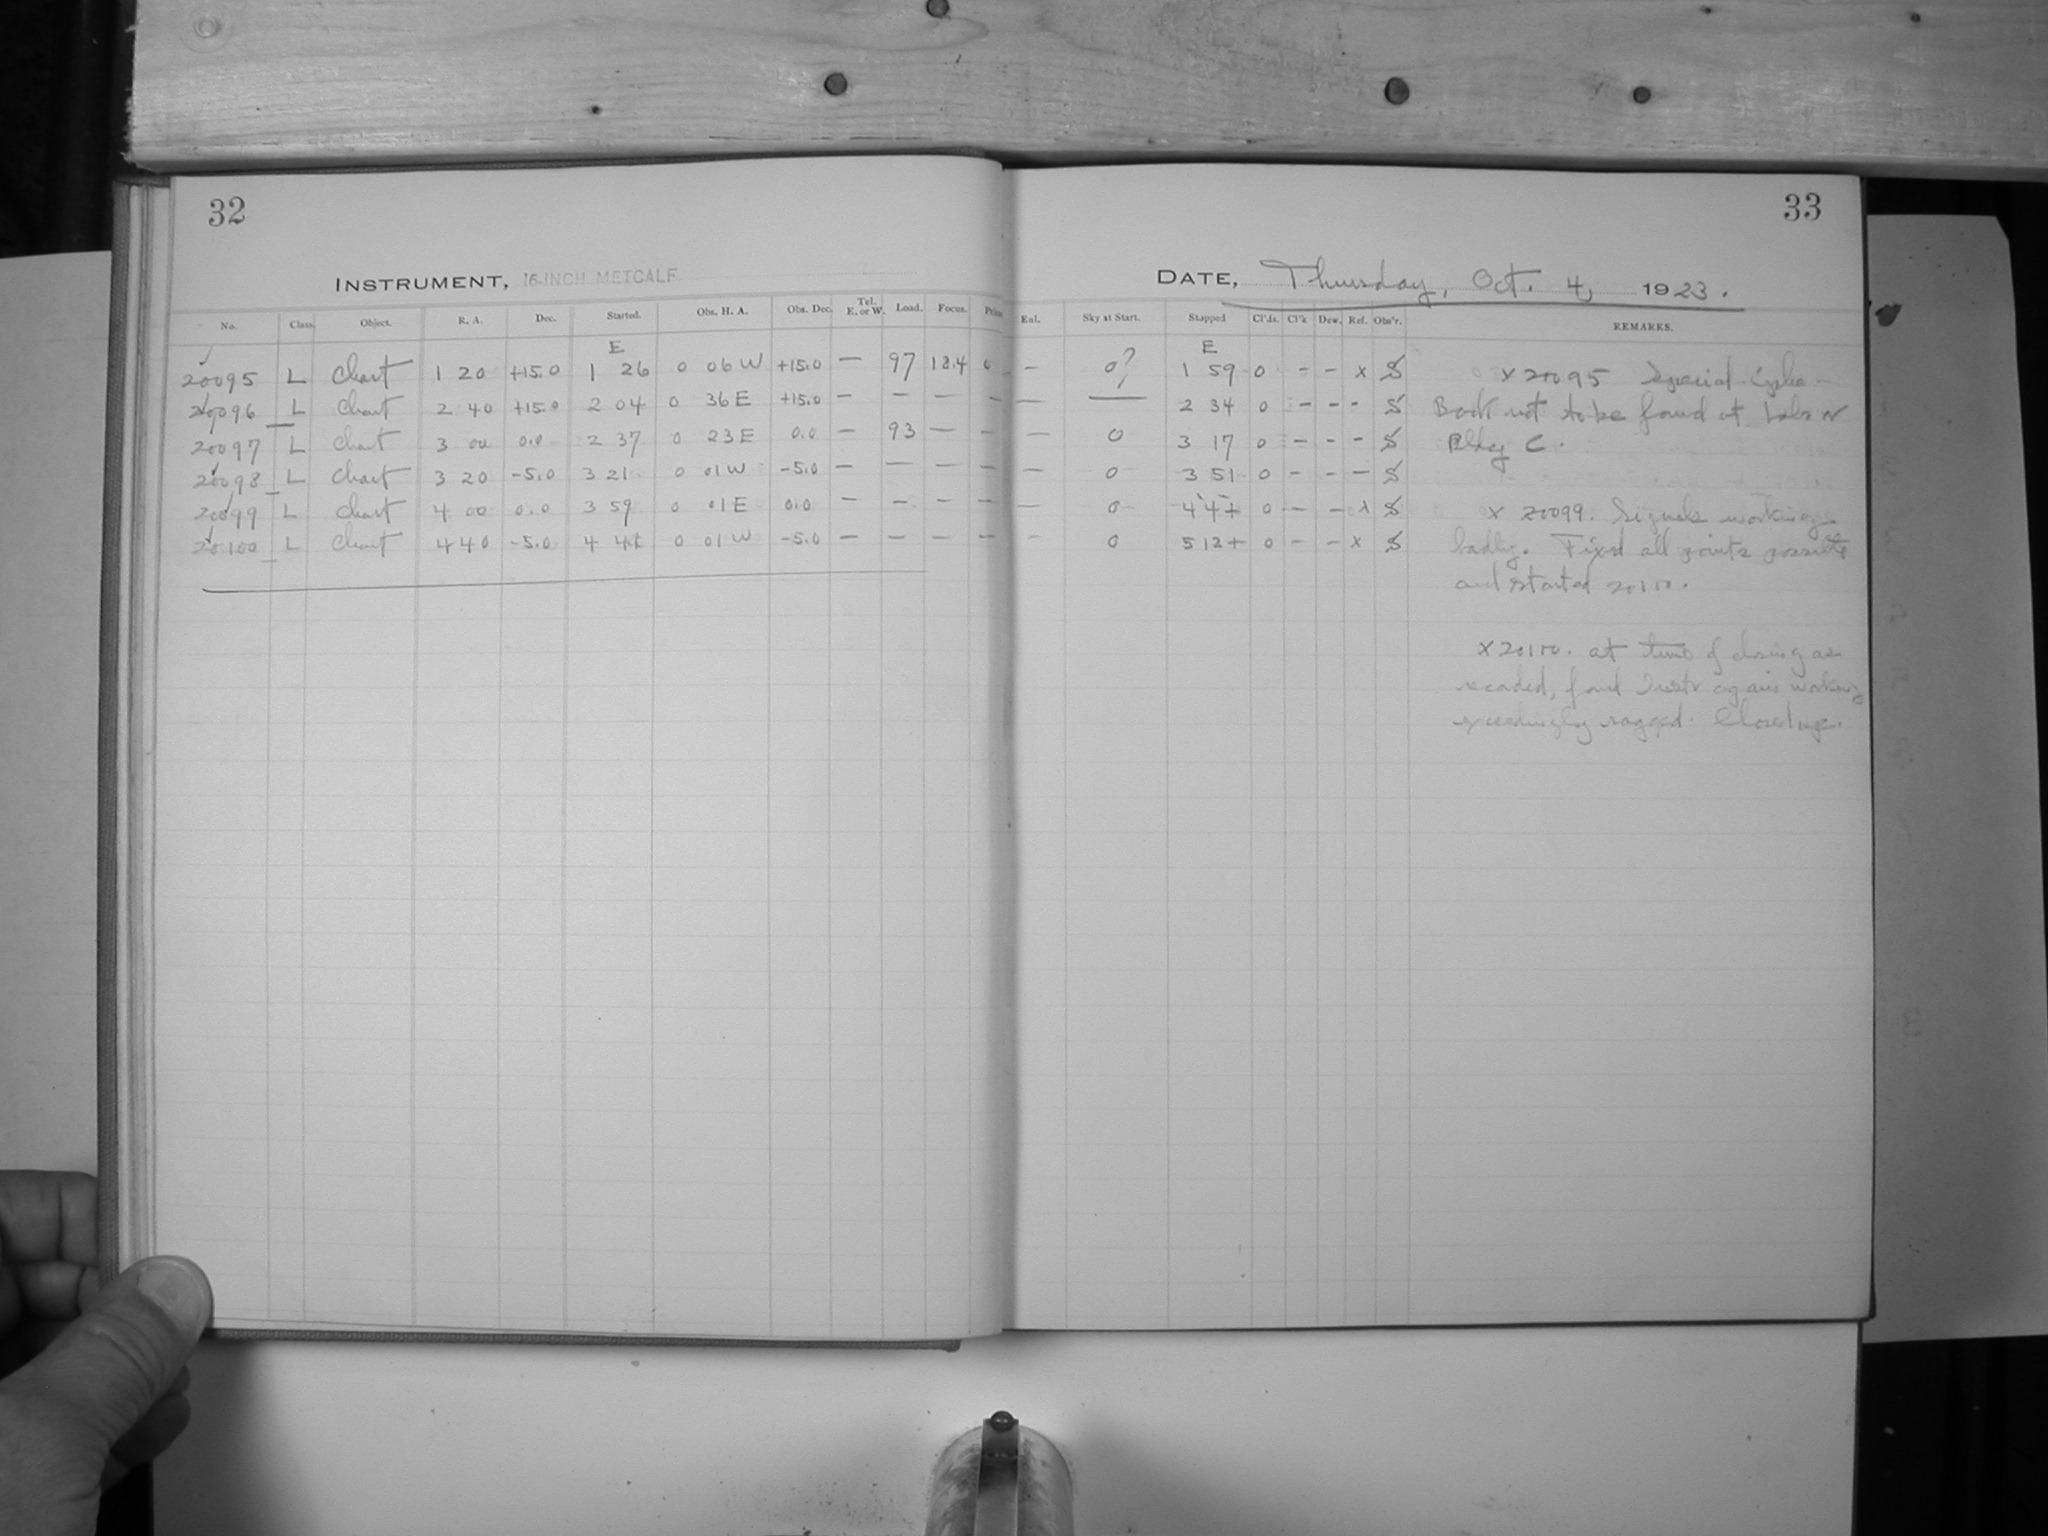 32
33
INSTRUMENT, 16-INCH METCALF
DATE, Thursday, Oct. 4, 1923.
No. Class. Object. R. A. Dec. Started. Obs. H. A. Obs. Dec. Tel. E. or W. Load. Focus. Sky at Start. Stopped Cl'ds. Cl'k Dew. Ref. Obs'r. REMARKS.
E E
20095 L Chart 1 20 +15.0 1 26 0 06 W +15.0 — 97 o — o? 1 59 0 - - x x 20095 Special
20096 L Chart 2 40 +15.0 2 04 0 36 E +15.0 — — — — — — 2 34 0 - - - Book not to be found at Labr or
20097 L Chart 3 00 0.0 2 37 0 23 E 0.0 — 93 — — — 0 3 17 0 - - - Bldg C.
20098 L Chart 3 20 -5.0 3 21 0 01 W -5.0 — — — — — 0 3 51 0 - - —
20099 L Chart 4 00 0.0 3 59 0 01 E 0.0 — — — — — 0 0 — — x x 20099. Signals working
20100 L Chart 4 40 -5.0 0 01 W -5.0 — — — — — 0 5 12+ 0 - - x badly. Fixed all points possible
and started 20100.
x 20100. at time of closing as
recorded, found Instr again working
exceedingly ragged. Closed up.